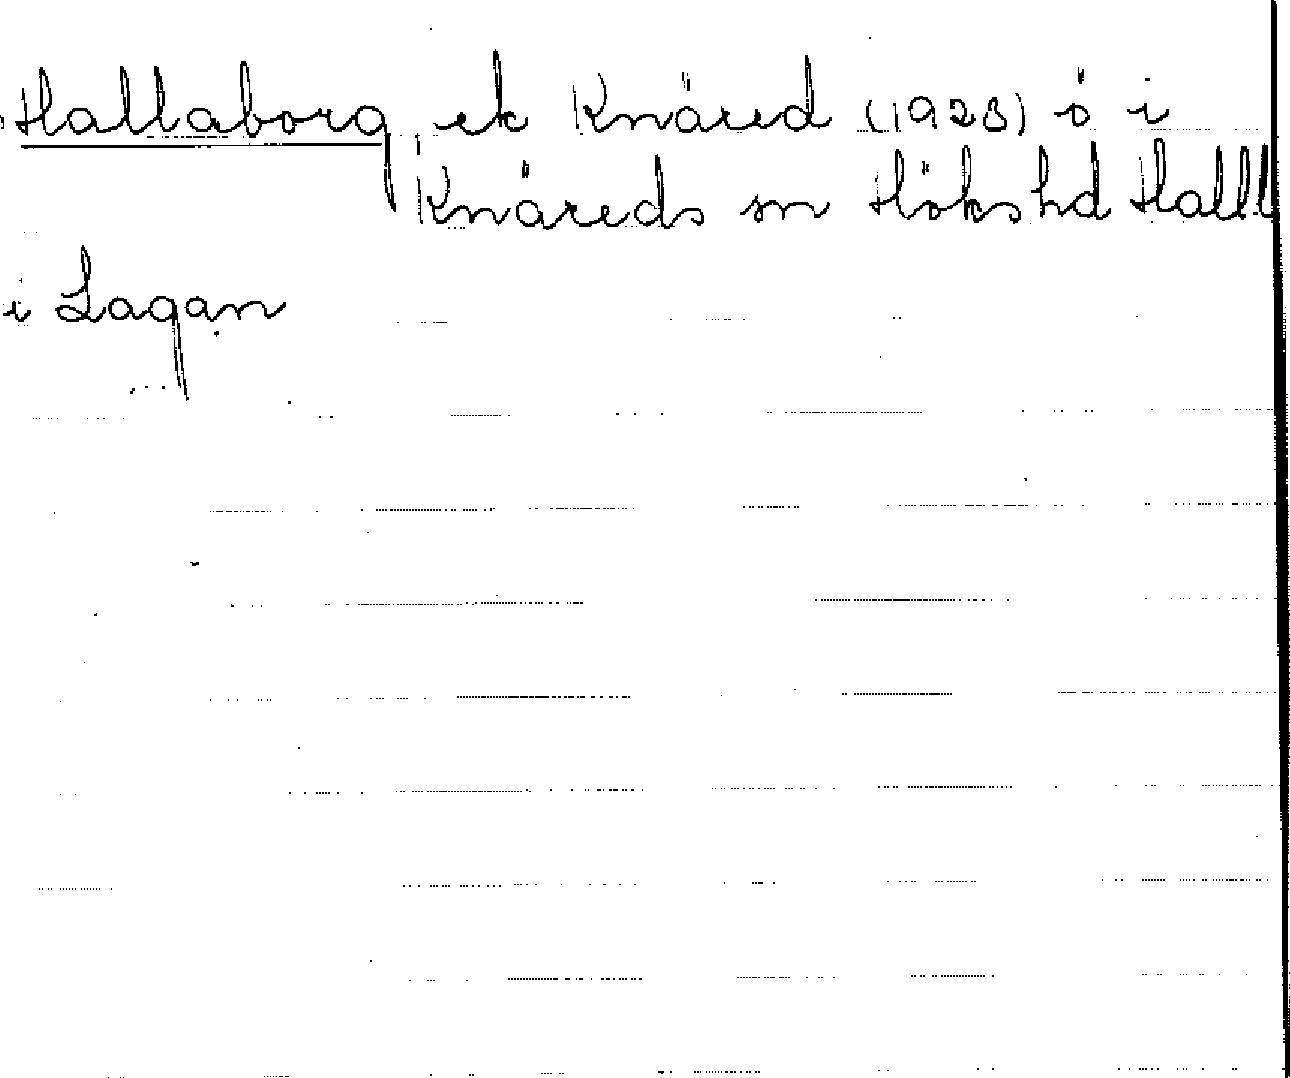 Hallaborg ek Knäred (1928) ö i
Knäreds sn Höks hd Hall
i Lagan